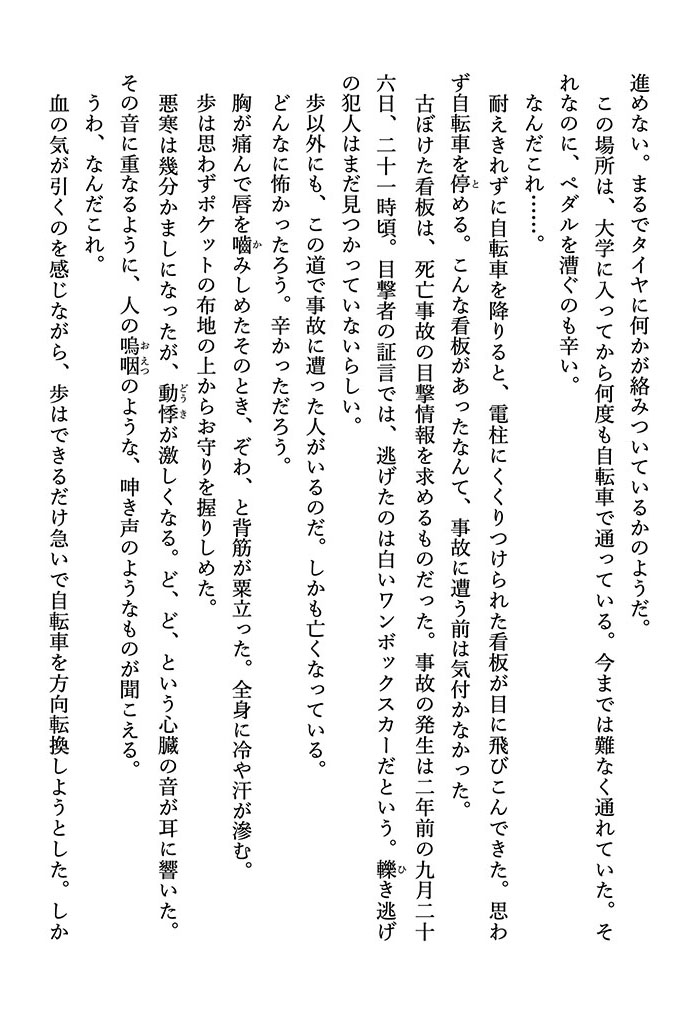 進めない。まるでタイヤに何かが絡みついているかのようだ。
この場所は、大学に入ってから何度も自転車で通っている。今までは難なく通れていた。そ
れなのに、ペダルを漕ぐのも辛い。
なんだこれ……。
耐えきれずに自転車を降りると、電柱にくくりつけられた看板が目に飛びこんできた。思わ
ず自転車を停とめる。こんな看板があったなんて、事故に遭う前は気付かなかった。
古ぼけた看板は、死亡事故の目撃情報を求めるものだった。事故の発生は二年前の九月二十
六日、二十一時頃。目撃者の証言では、逃げたのは白いワンボックスカーだという。轢ひき逃げ
の犯人はまだ見つかっていないらしい。
歩以外にも、この道で事故に遭った人がいるのだ。しかも亡くなっている。
どんなに怖かったろう。辛かっただろう。
胸が痛んで唇を嚙かみしめたそのとき、ぞわ、と背筋が粟立った。全身に冷や汗が滲む。
歩は思わずポケットの布地の上からお守りを握りしめた。
悪寒は幾分かましになったが、動悸どうきが激しくなる。ど、ど、という心臓の音が耳に響いた。
その音に重なるように、人の嗚咽おえつのような、呻き声のようなものが聞こえる。
うわ、なんだこれ。
血の気が引くのを感じながら、歩はできるだけ急いで自転車を方向転換しようとした。しか